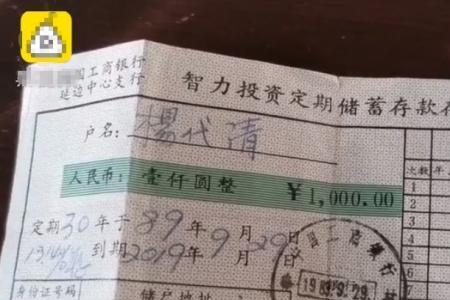 国工商银行
延边中心支行
智力投资定期储蓄存款存
户名：楊代清
人民币：壹仟圆整 ￥1,000.00
定期30年于89年9月29日
到期2019年9月29日
次数 年
1
2
3
4
5
6
7
身份证号码
储户地址
1989.9.29